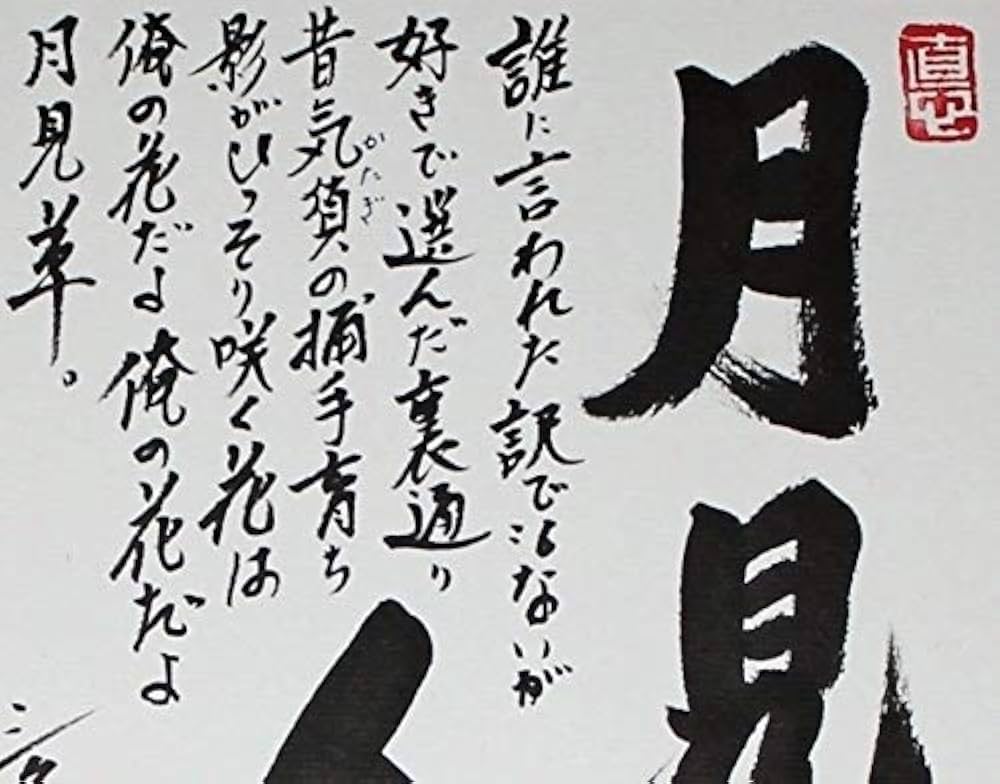 月見
誰に言われた訳ではないが
好きで選んだ裏通り
かたぎ
昔気質の捕手育ち
影がひっそり咲く花は
俺の花だよ俺の花だよ
月見草。